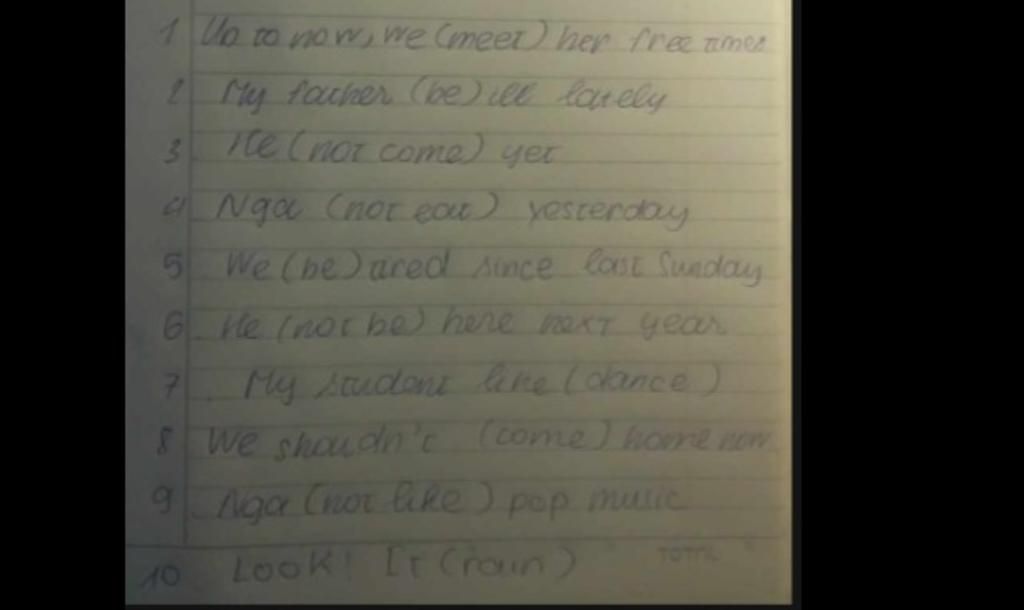 1 Up to now, we (meet) her free times
2 My father (be) ill lately
3 He (not come) yet
4 Nga (not eat) yesterday
5 We (be) ared since last Sunday
6 He (not be) here next year
7 My student like (dance)
8 We shoudn't (come) home now
9 Nga (not like) pop music
10 Look! It (rain)